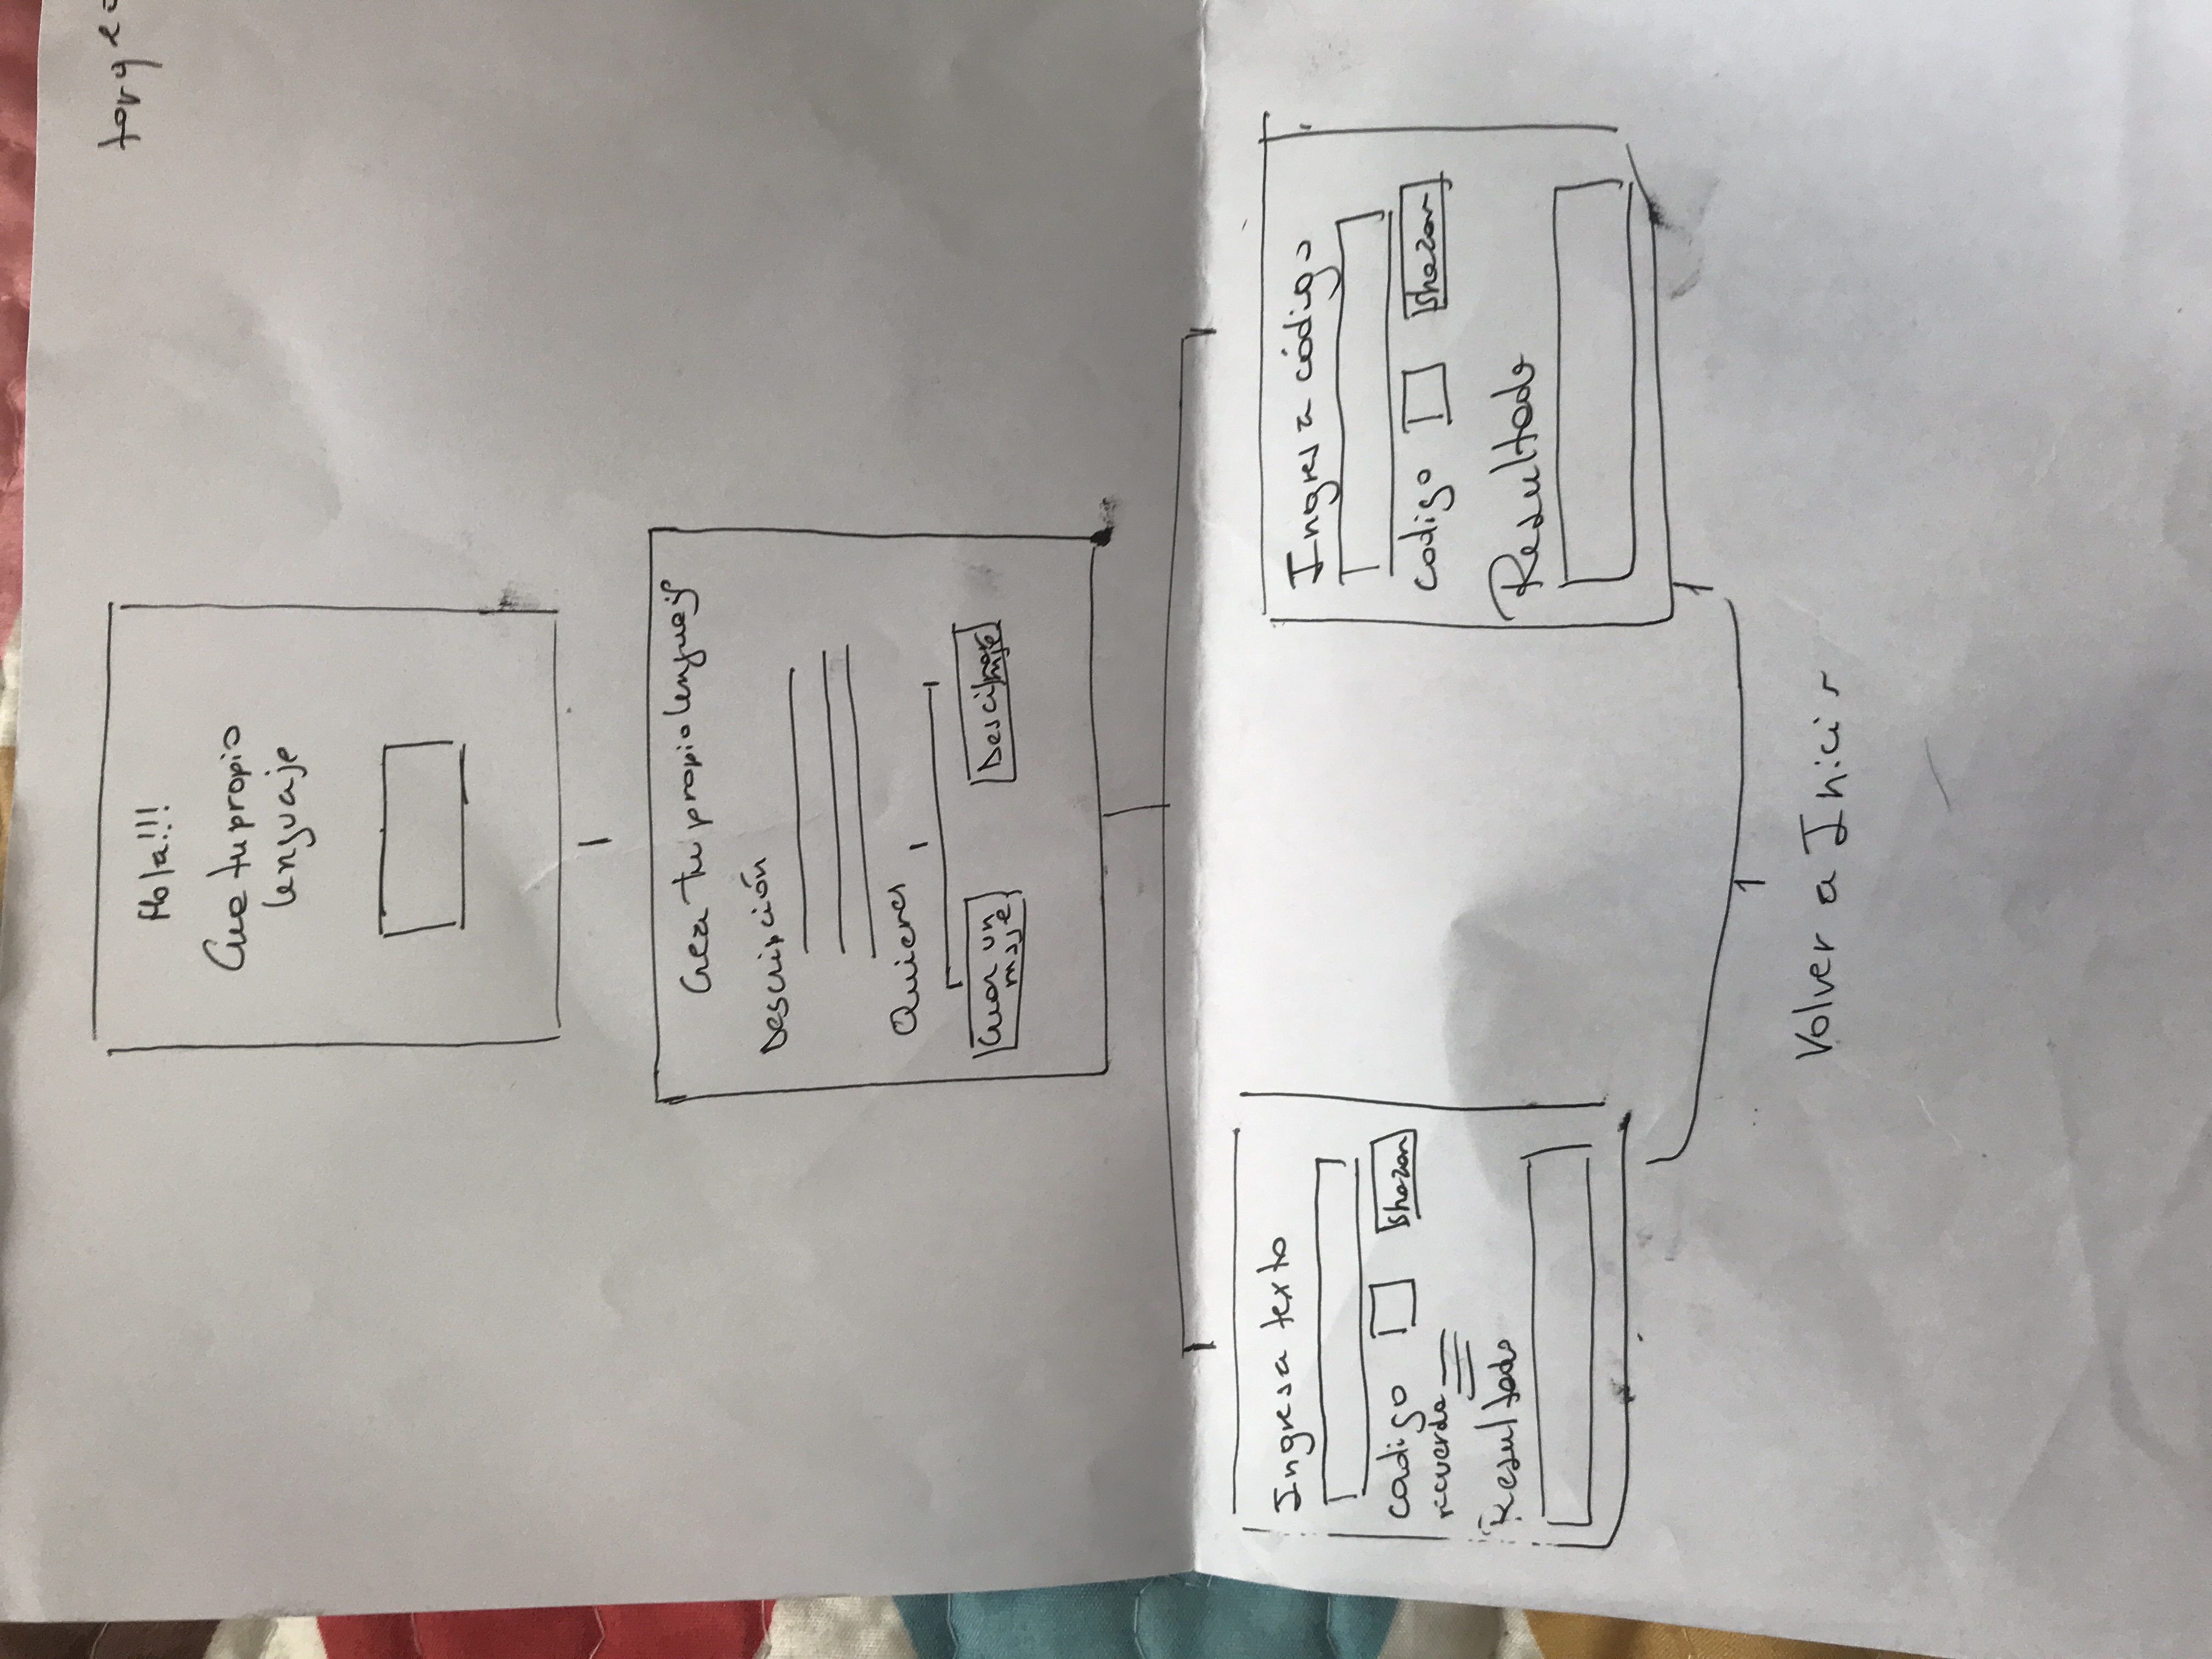 Hola!!!
Crea tu propio
lenguaje
Crea tu propio lenguaje
Descripción
Quieres
Crear un
msje
Descifrar
msje
Ingresa texto
codigo
shazan
recuerda
Resultado
Ingresa código
codigo
shazan
Resultado
Volver a Inicio